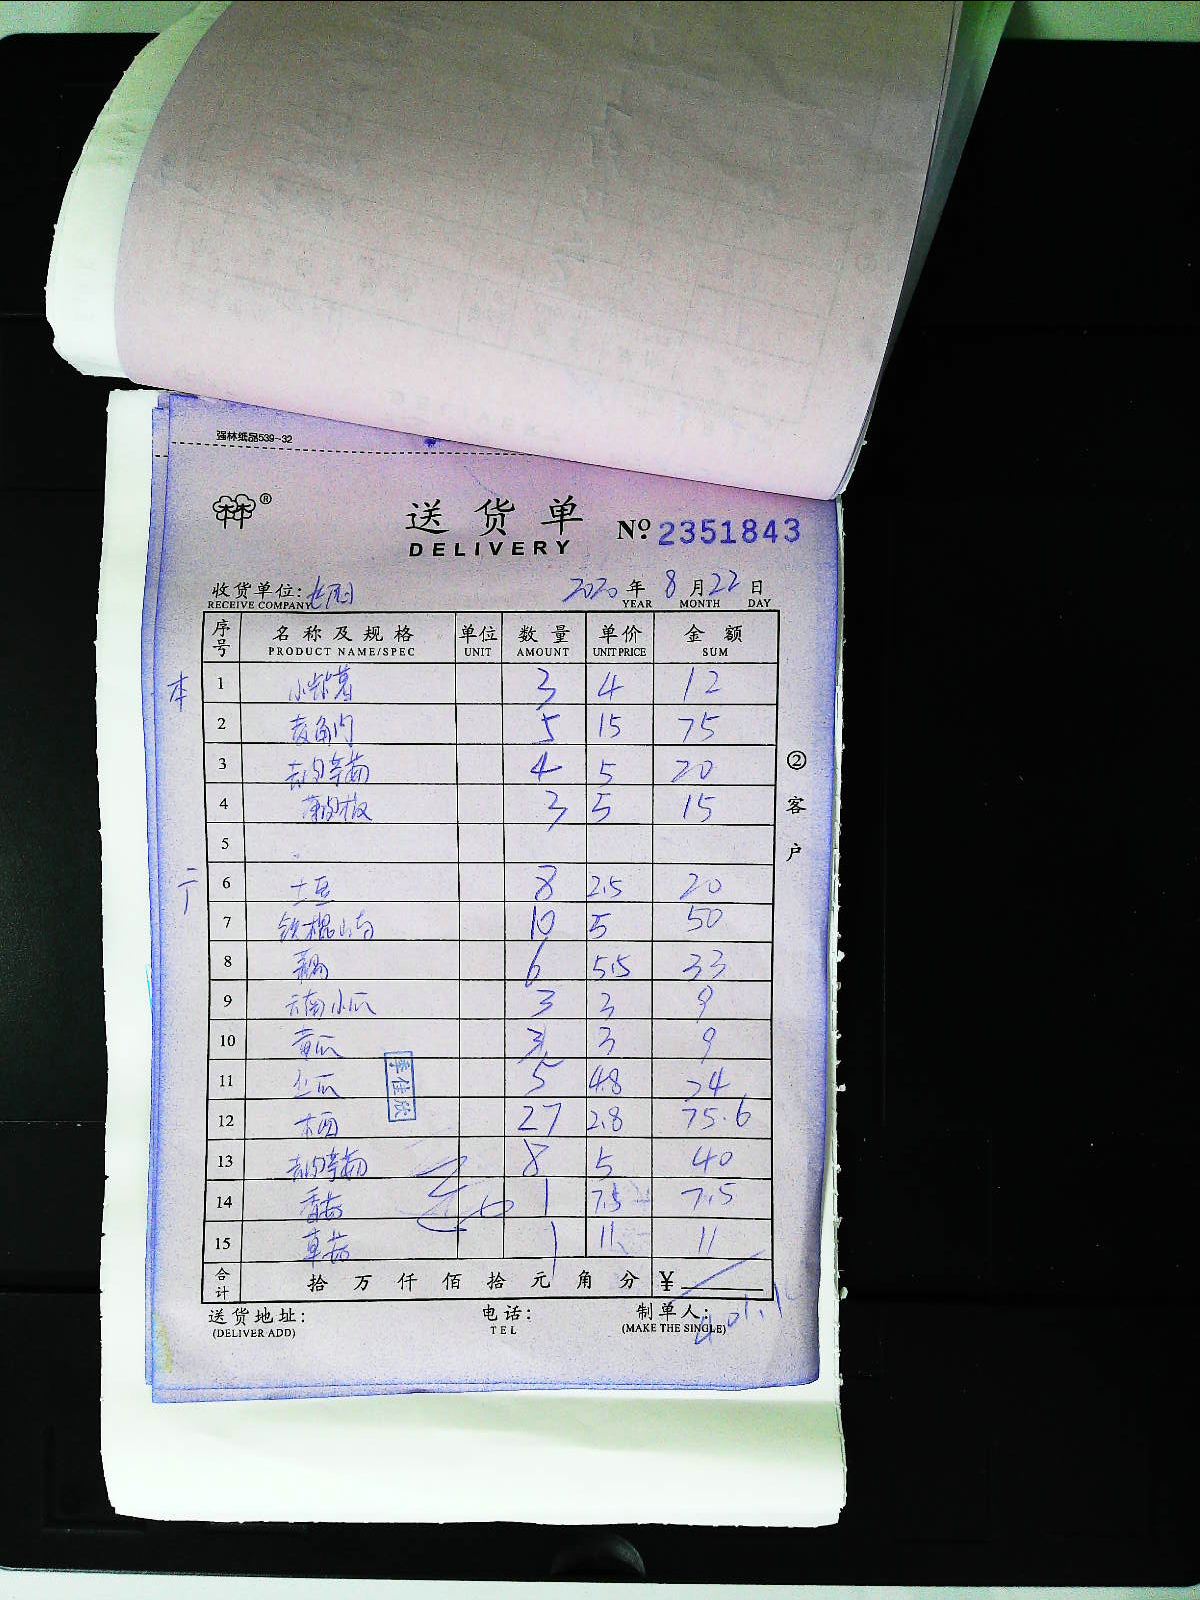 强林纸品539-32
林®
送货单 No 2351843
DELIVERY
收货单位: 2020 年 8 月 22 日
RECEIVE COMPANY YEAR MONTH DAY
序号 名称及规格 单位 数量 单价 金额
PRODUCT NAME/SPEC UNIT AMOUNT UNIT PRICE SUM
本 1 3 4 12
2 5 15 75
3 4 5 20
4 3 5 15
5
6 土豆 8 2.5 20
7 铁棍山药 10 5 50
8 6 5.5 33
9 云南小瓜 3 3 9
10 黄瓜 3 3 9
11 5 4.8 24
12 27 2.8 75.6
13 8 5 40
14 香菇 1 7.5 7.5
15 草菇 1 11 11
李佳欣
合计 拾 万 仟 佰 拾 元 角 分 ¥
送货地址: 电话: 制单人:
(DELIVER ADD) TEL (MAKE THE SINGLE)
②客户